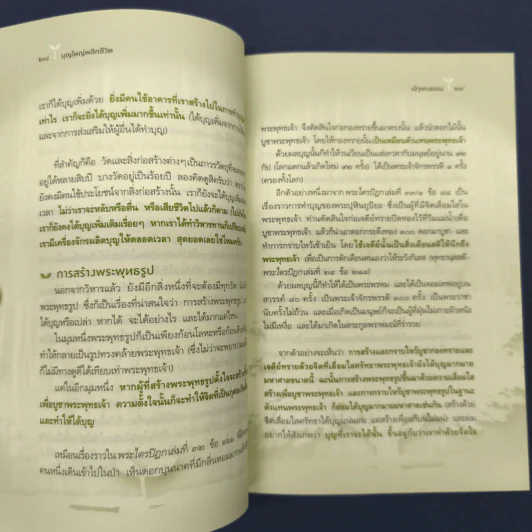 ๒๘ บุญใหญ่พลิกชีวิต
เราก็ได้บุญเพิ่มด้วย ยิ่งมีคนใช้อาคารที่เราสร้างไปในการทำบุญ
เท่าไร เราก็จะยิ่งได้บุญเพิ่มมากขึ้นเท่านั้น (ได้บุญจากการ
และจากการส่งเสริมให้ผู้อื่นได้ทำบุญ)
ที่สำคัญก็คือ วัดและสิ่งก่อสร้างต่างๆเป็นถาวรวัตถุที่จะคง
อยู่ได้หลายสิบปี บางวัดอยู่เป็นร้อยปี ลองคิดดูสิครับว่า
ยังคงมีคนใช้ประโยชน์จากสิ่งก่อสร้างนั้น เราก็ยังจะได้บุญ
เวลา ไม่ว่าเราจะหลับหรือตื่น หรือเสียชีวิตไปแล้วก็ตาม
เราก็ยังคงได้บุญเพิ่มเติมเรื่อยๆ หากเราได้ทำวิหารทาน
เรามีเครื่องจักรผลิตบุญให้ตลอดเวลา สุดยอดเลยใช่ไหมครับ
การสร้างพระพุทธรูป
นอกจากวิหารแล้ว ยังมีอีกสิ่งหนึ่งที่จะต้องมีทุกวัด นั่นคือ
พระพุทธรูป ซึ่งก็เป็นเรื่องที่น่าสนใจว่า การสร้างพระพุทธรูป
ได้บุญหรือเปล่า หากได้ จะได้อย่างไร และได้มากแค่ไหน
ในมุมหนึ่งพระพุทธรูปก็เป็นเพียงก้อนโลหะหรือก้อนดิน
ทำให้กลายเป็นรูปทรงคล้ายพระพุทธเจ้า (ซึ่งไม่ว่าจะพยายาม
ก็ไม่มีทางดูดีได้เทียบเท่าพระพุทธเจ้า)
แต่ในอีกมุมหนึ่ง หากผู้ที่สร้างพระพุทธรูปตั้งใจจะสร้าง
เพื่อบูชาพระพุทธเจ้า ความตั้งใจนั้นก็จะทำให้จิตที่เป็นกุศล
และทำให้ได้บุญ
เหมือนเรื่องราวใน พระไตรปิฎกเล่มที่ ๓๒ ข้อ
คนหนึ่งเดินเข้าไปในป่า เห็นดอกบุนนาคที่มีกลิ่นหอม
ณัฐพบธรรม ๒๙
พระพุทธเจ้า จึงตัดสินใจก่อกองทรายขึ้นมาตรงนั้น แล้วนำดอกไม้นั้น
บูชาพระพุทธเจ้า โดยให้กองทรายนั้นเป็นเหมือนตัวแทนพระพุทธเจ้า
ด้วยผลบุญนั้นก็ทำให้วนเวียนเป็นแต่เทวดากับมนุษย์อยู่นาน ๙๒
กัป (โลกแตกแล้วเกิดใหม่ ๙๒ ครั้ง) ได้เป็นพระเจ้าจักรพรรดิ ๑ ครั้ง
(ครองทั้งโลก)
อีกตัวอย่างหนึ่งมาจาก พระไตรปิฎกเล่มที่
เรื่องราวการทำบุญของพระปุฬินถูปิยะ ซึ่งเป็นผู้ที่มีจิตเลื่อมใสใน
พระพุทธเจ้า ท่านตัดสินใจก่อเจดีย์ทรายปิดทองไว้ที่ริมแม่น้ำเพื่อ
บูชาพระพุทธเจ้า แล้วก็นำเอาดอกกระดึงทอง ๓๐๐ ดอกมาบูชา และ
ทำการกราบไหว้เช้าเย็น โดยใช้เจดีย์นั้นเป็นสิ่งเตือนสติให้นึกถึง
พระพุทธเจ้า เพื่อเป็นการตักเตือนตนเองว่าให้ระวังกิเลส
พระไตรปิฎกเล่มที่
ด้วยผลบุญนั้นก็ทำให้ได้เป็นพระพรหม และได้เป็นจอมเทพอยู่บน
สวรรค์ ๘๐ ครั้ง เป็นพระเจ้าจักรพรรดิ ๓๐๐ ครั้ง เป็นพระราชา
นับครั้งไม่ถ้วน และเมื่อเกิดเป็นมนุษย์ก็จะเป็นผู้ที่ฝุ่นไม่เกาะผิวหนัง
ไม่มีเหงื่อ และได้มาเกิดในตระกูลพราหมณ์ที่ร่ำรวย
จากตัวอย่างจะเห็นว่า การสร้างและกราบไหว้บูชากองทรายและ
เจดีย์ทรายด้วยจิตที่เลื่อมใสศรัทธาพระพุทธเจ้ายังได้บุญมากมาย
มหาศาลขนาดนี้ ฉะนั้นการสร้างพระพุทธรูปขึ้นมาด้วยความเลื่อมใส
เพื่อสร้างพระพุทธเจ้า และการกราบไหว้บูชาพระพุทธรูปในฐานะ
ตัวแทนพระพุทธเจ้า ก็ย่อมได้บุญมากมายมหาศาลเช่นกัน (สร้างด้วย
จิตที่เลื่อมใสศรัทธาได้บุญแน่นอน
อยากให้สังเกตว่า บุญที่เราจะได้นั้น ขึ้นอยู่กับว่าเราทำด้วยจิตใจ